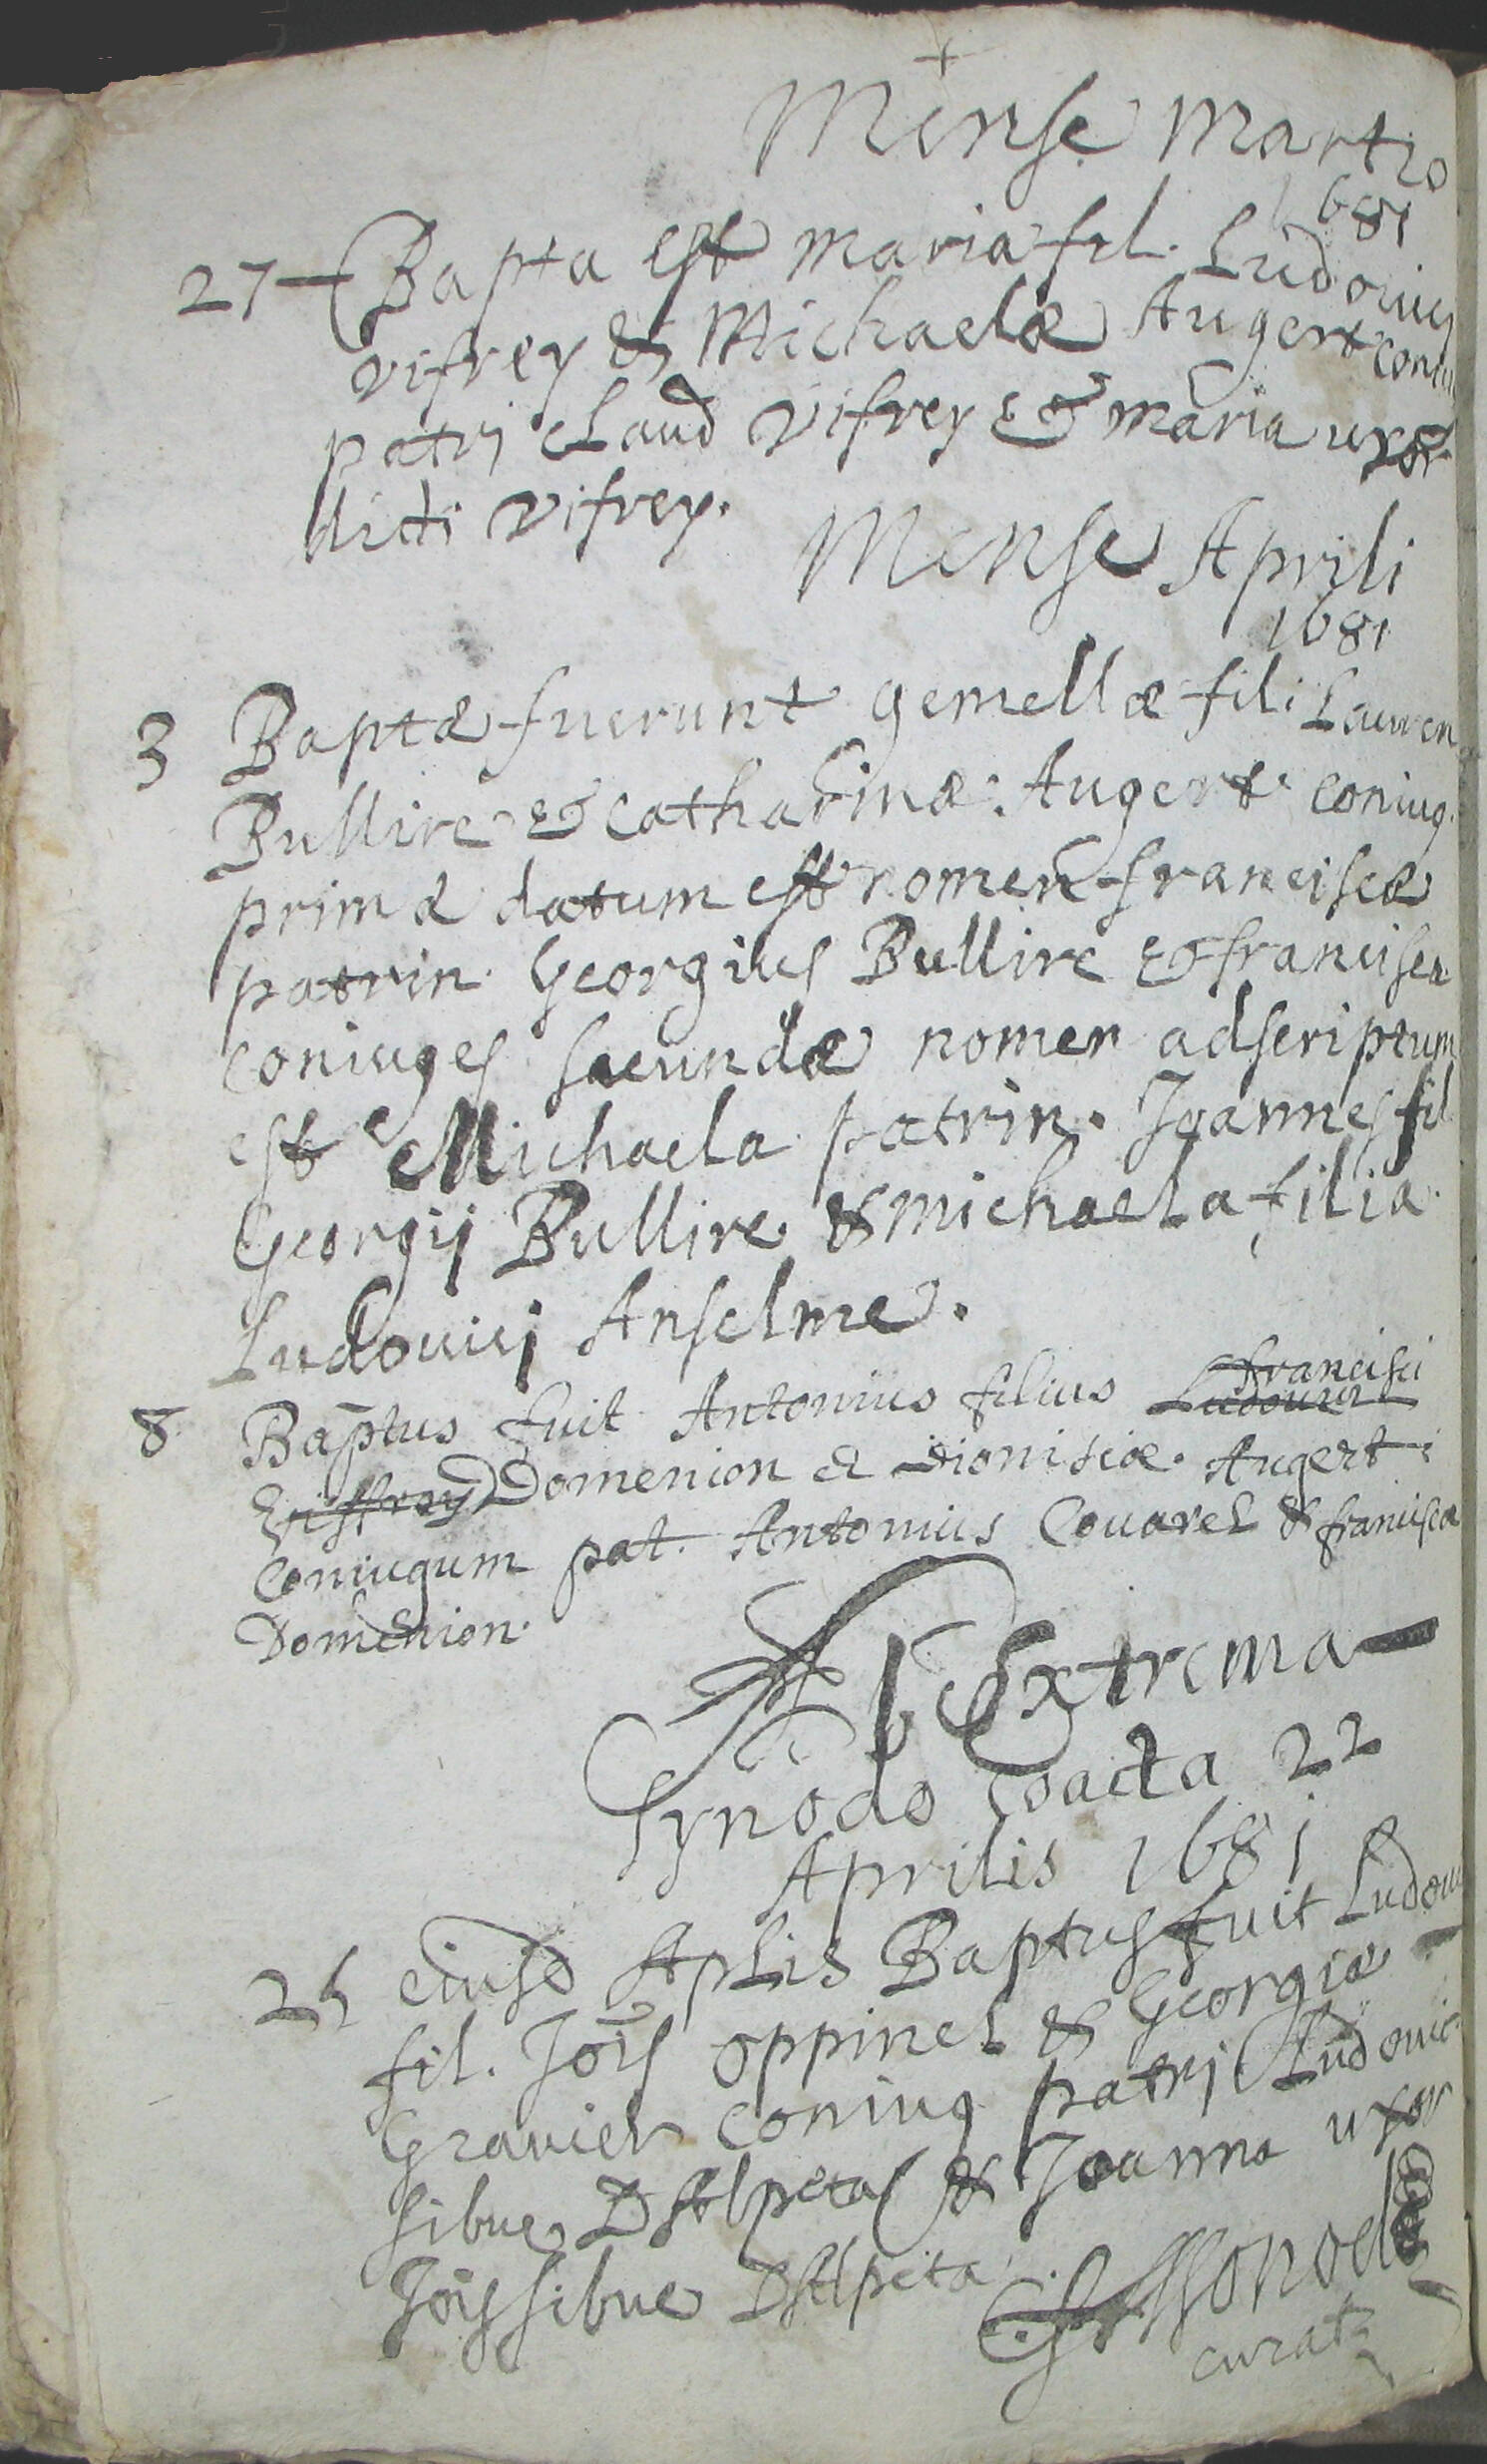 +
Mense Martio
1681
27 Bapta est maria fil. Ludovicj
vifrey & Michaelæ Augert coniu
patrj claud vifrey & maria uxor
dicti vifrey.
Mense Aprili
1681
3 Baptæ fuerunt gemellæ fili Lauren
Bullire & catharinæ Augert coniug.
primæ datum est nomen franciscæ
patrin. Georgius Bullire & francisca
coniuges secundæ nomen adscriptum
est Michaela patrin. Joannes fil
Georgij Bullire & michaela filia
Ludovicj Anselme.
francisci
8 Baptus fuit Antonius filius Ludovici
Domenion & Dionisiæ Augert
Coniugum pat. Antonius Couarel & francisca
Domenion.
Ab Extrema
synodo coacta 22
Aprilis 1681
25 eiusd Aplis Baptus fuit Ludovi
fil. Jois oppinel & Georgiæ
Gravier coniug patrj Ludovic.
sibue & Joanna uxor
Jois sibue
curat